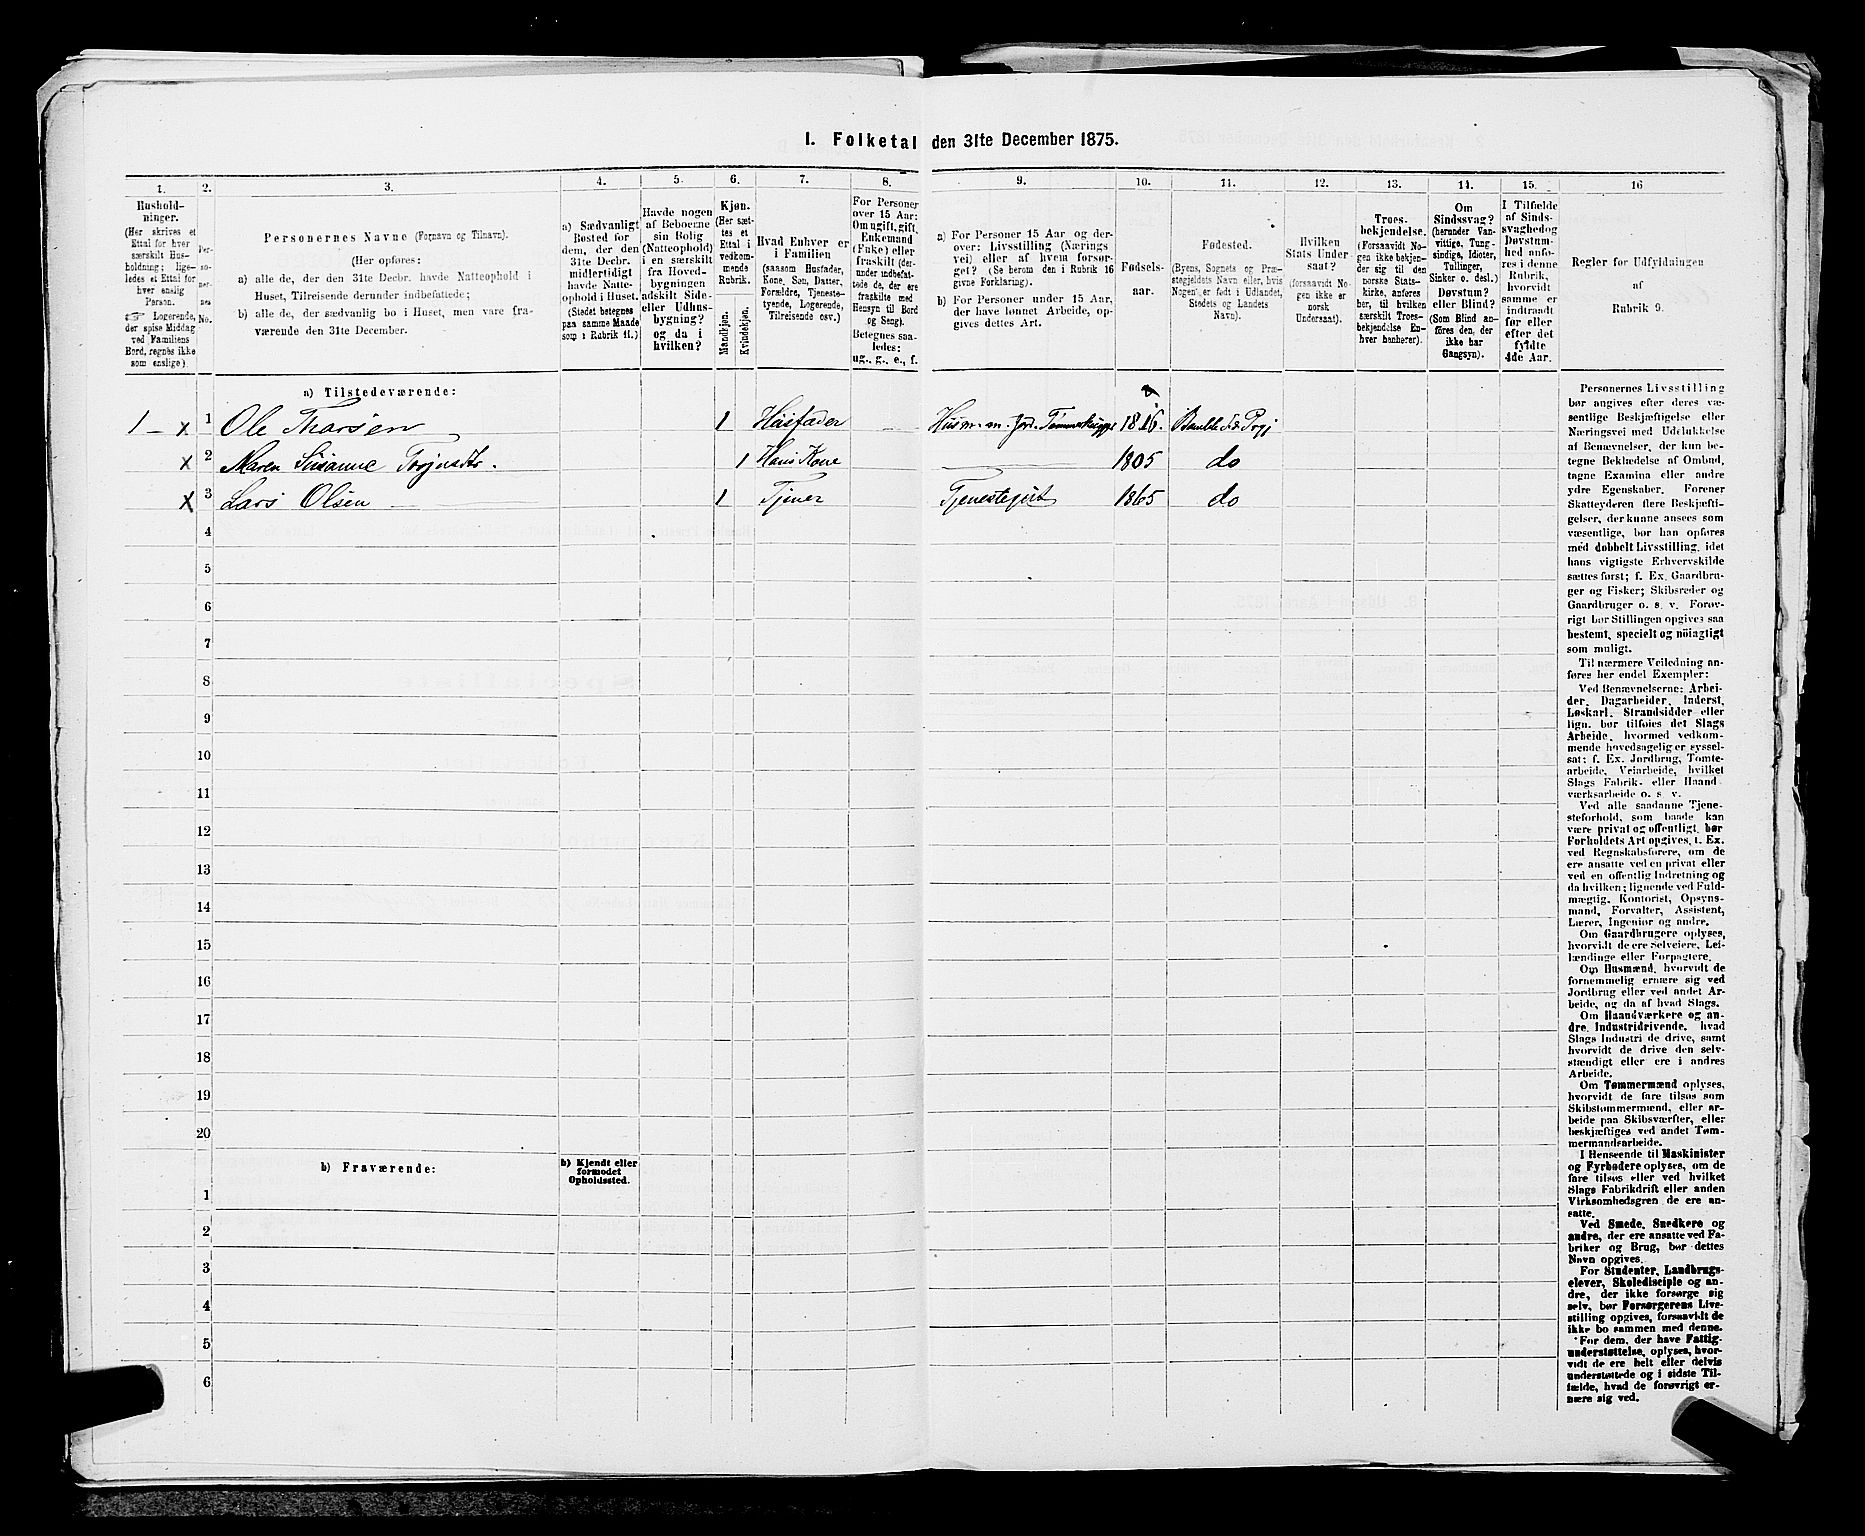 1. Folketal den 31te December 1875.
1. 2. 3. 4. 5. 6. 7. 8. 9. 10. 11. 12. 13. 14. 15. 16
Husholdninger.
(Her skrives et
Ettal for hver
særskilt Husholdning;
ligeledes et Ettal for
hver enslig
Person.
☞ Logerende,
der spise Middag
ved Familiens
Bord, regnes ikke
som enslige).
Personernes No.
Personernes Navne (Fornavn og Tilnavn).
(Her opføres:
a) alle de, der den 31te Decbr. havde Natteophold i
Huset, Tilreisende derunder indbefattede;
b) alle de, der sædvanlig bo i Huset, men vare fraværende
den 31te December.
a) Sædvanligt
Bosted for
dem, der den
31te Decbr.
midlertidigt
havde Natteophold
i Huset.
(Stedet betegnes
paa samme Maade
som i Rubrik 11.)
Havde nogen
af Beboerne
sin Bolig
(Natteophold)
i en særskilt
fra Hovedbygningen
adskilt Side-
eller Udhusbygning?
og da i
hvilken?
Kjøn.
(Her sættes
et
Ettal i
vedkommende
Rubrik.
Mandkjøn.
Kvindekjøn.
Hvad Enhver er
i Familien
(saasom Husfader,
Kone, Søn, Datter,
Forældre, Tjenestetyende,
Logerende,
Tilreisende osv.)
For Personer
over 15 Aar:
Om ugift, gift,
Enkemand
(Enke) eller
fraskilt (derunder
indbefattede
de, der ere
fraskilte med
Hensyn til Bord
og Seng).
Betegnes saaledes:
ug., g., e., f.
a) For Personer 15 Aar og derover:
Livsstilling (Næringsvei)
eller af hvem forsørget?
(Se herom den i Rubrik 16
givne Forklaring).
b) For Personer under 15 Aar,
der have lønnet Arbeide, opgives
dettes Art.
Fødselsaar.
Fødested.
(Byens, Sognets og Præstegjeldets
Navn eller, hvis
Nogen er født i Udlandet,
Stedets og Landets
Navn).
Hvilken
Stats Undersaat?
(forsaavidt Nogen
ikke er
norsk
Undersaat).
Troesbekjendelse.
(Forsaavidt Nogen
ikke bekjender
sig til den
norske Statskirke,
anføres
her, til hvilken
særskilt Troesbekjendelse
Enhver
henhører).
Om
Sindssvag?
(herunder Vanvittige,
Tungsindige,
Idioter,
Tullinger,
Sinker o. desl.)
Døvstum?
eller Blind?
(Som Blind anføres
den, der
ikke har
Gangsyn).
I Tilfælde
af Sindssvaghed
og
Døvstumhed
anføres
i denne
Rubrik,
hvorvidt
samme er
indtraadt
før eller
efter det
fyldte
4de Aar.
Regler for Udfyldningen
af
Rubrik 9.
a) Tilstedeværende:
1 – x 1 Ole Tharsen 1 Husfader Husm. m. Jord. 1816. Bamble
x 2 Maren Susanne 1 Hans Kone 1805 do
x 3 Lars Olsen 1 Tjener 1865 do
4
5
6
7
8
9
10
11
12
13
14
15
16
17
18
19
20
b) Fraværende:
b) Kjendt eller
formodet
Opholdssted.
1
2
3
4
5
6
Personernes Livsstilling
bør angives efter deres væsentlige
Beskjæftigelse eller
Næringsvei med Udelukkelse
af Benævnelser, der kun betegne
Beklædelse af Ombud,
tagne Examina eller andre
ydre Egenskaber. Forener
Skatteyderen flere Beskjæftigelser,
der kunne ansees som
væsentlige, bør han opføres
med dobbelt Livsstilling, idet
hans vigtigste Erhvervskilde
sættes først; f. Ex. Gaardbruger
og Fisker; Skibsreder og
Gaardbruger o. s. v. Forøvrigt
bør Stillingen opgives saa
bestemt, specielt og nöiagtigt
som muligt.
Til nærmere Veiledning anføres
her endel Exempler:
Ved Benævnelserne: Arbeider,
Dagarbeider, Inderst,
Løskarl, Strandsidder eller
lign. bør tilføies det Slags
Arbeide, hvormed vedkommende
hovedsagelig er sysselsat:
f. Ex. Jordbrug, Tomtearbeide,
Veiarbeide, hvilket
Slags Fabrik- eller Haandværksarbeide
o. s. v.
Ved alle saadanne Tjenesteforhold,
som baade kan
være privat og offentligt, bør
Forholdets Art opgives, f. Ex.
ved Regnskabsførere, om de
ere ansatte ved en privat eller
ved en offentlig Indretning og
da hvilken; lignende ved Fuldmægtig,
Kontorist, Opsynsmand,
Forvalter, Assistent,
Lærer, Ingeniør og andre.
Om Gaardbrugere oplyses,
hvorvidt de ere Selveiere, Leilændinge
eller Forpagtere.
Om Husmænd, hvorvidt de
fornemmelig ernære sig ved
Jordbrug eller ved andet Arbeide,
og da af hvad Slags.
Om Haandværkere og andre
Industridrivende, hvad
Slags Industri de drive, samt
hvorvidt de drive den selvstændigt
eller ere i andres
Arbeide.
Om Tømmermænd oplyses,
hvorvidt de fare tilsøs som
Skibstømmermænd, eller arbeide
paa Skibsværfter, eller
beskjæftiges ved andet Tømmermandsarbeide.
I Henseende til Maskinister
og Fyrbødere oplyses, om de
fare tilsøs eller ved hvilket
Slags Fabrikdrift eller anden
Virksomhedsgren de ere ansatte.
Ved Smede, Snedkere og
andre, der ere ansatte ved Fabriker
og Brug, bør dettes
Navn opgives.
For Studenter, Landbrugselever,
Skoledisciple og andre,
der ikke forsørge sig
selv, bør Forsørgerens Livestilling
opgives, forsaavidt de
ikke bo sammen med denne.
For dem, der have Fattigunderstøttelse,
oplyses, hvorvidt
de ere helt eller delvis
understøttede og i sidste Tilfælde,
hvad de forøvrigt ernære
sig ved.